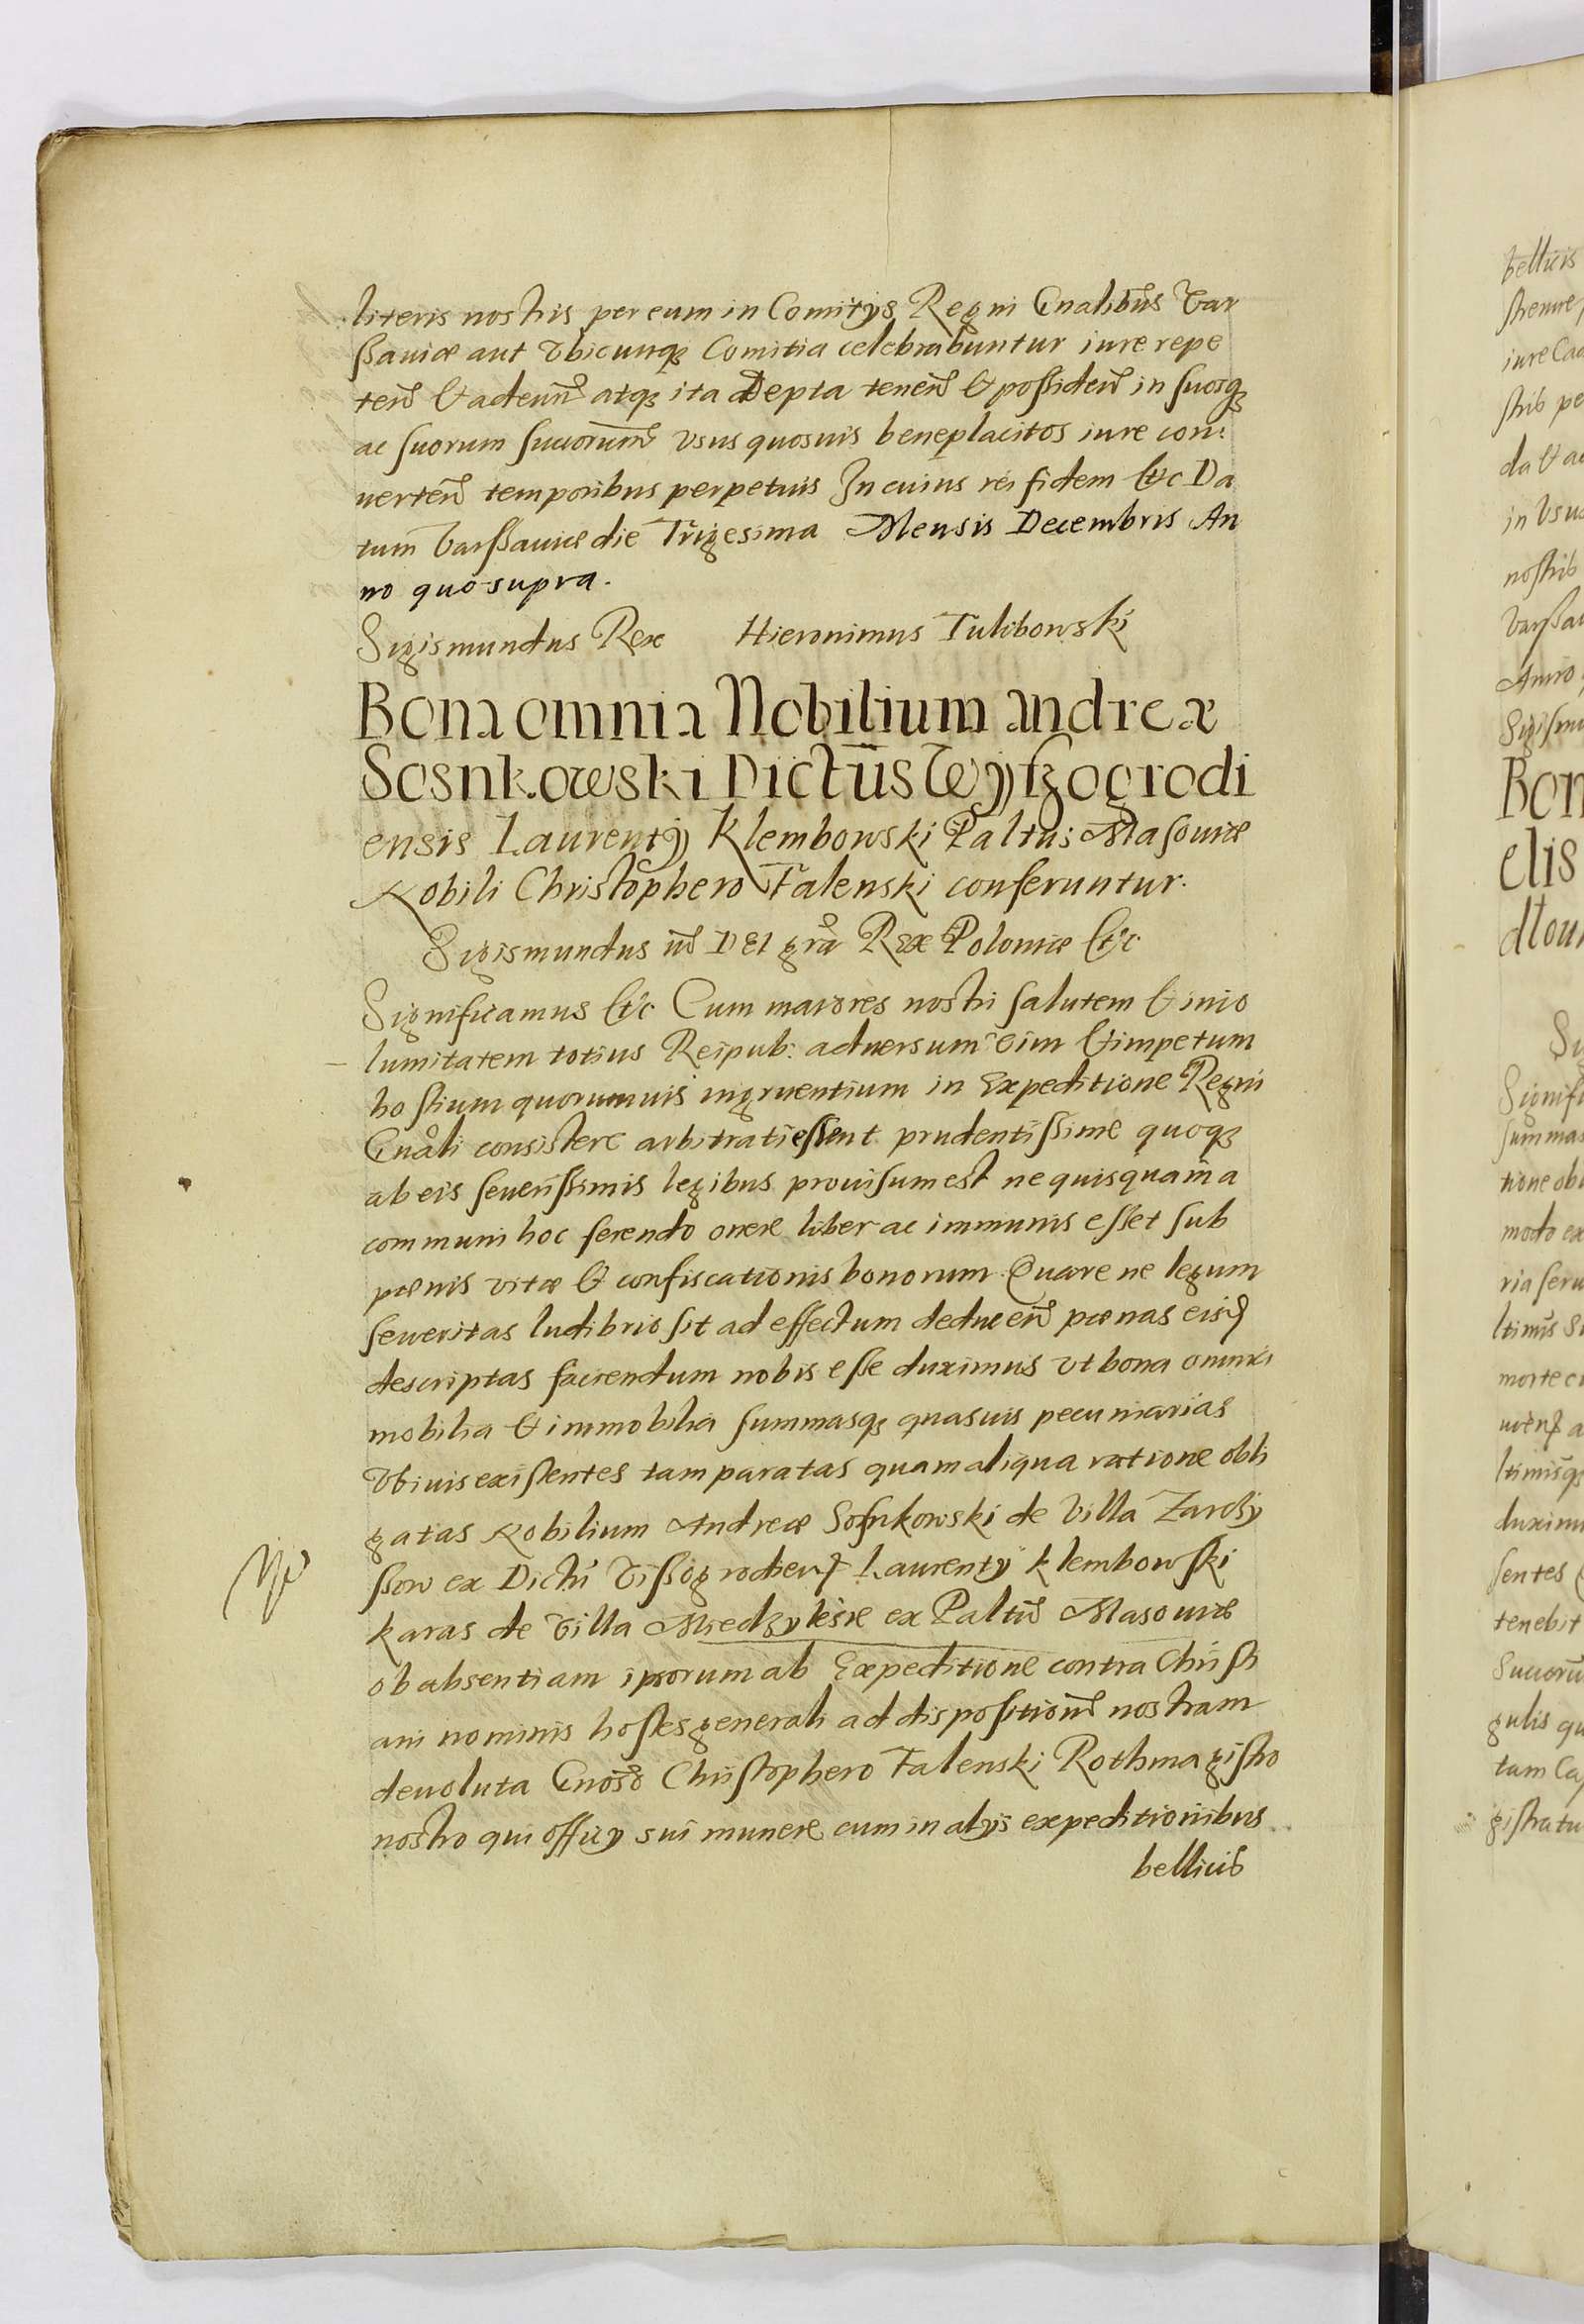 literis nostris per eum in Comitÿs Regni Gnalibus Var
ßauiæ aut Vbicunq₃ Comitia celebrabuntur iure repe
ten̄ & adeun̄ atq₃ ita adepta tenen̄ & possiden̄ in suosq₃
ac suorum succorum̄ vsus quosuis beneplacitos iure con:
uerten̄ temporibus perpetuis In cuius rei fidem &c Da
tum Varßauiæ die Trigesima Mensis Decembris An
no quo supra.
Sigismundus Rex Hieronimus Tulibowski
Bona omnia Nobilium Andreæ
Sosnkowski Dictus Wÿszogrodi
ensis Laurentÿ Klembowski Paltus Masouiæ
Nobili Christophero Falenski conferuntur.
Sigismundus iii Dei gra Rex Poloniæ &c
Significamus &c Cum maiores nostri salutem & inco
lumitatem totius Reipub: aduersum vim & impetum
hostium quorumuis ingruentium in Expeditione Regni
Gnali consistere arbitrati essent prudentissime quoq₃
ab eis seuerissimis legibus prouisum est ne quisquam a
communi hoc ferendo onere liber ac immunis esset sub
pænis vitæ & confiscationis bonorum Quare ne legum
seueritas ludibrio sit ad effectum deducen̄ pœnas eisd
descriptas faciendum nobis esse duximus vt bona omnia
mobilia & immobilia summasq₃ quasuis pecuniarias
Vbiuis existentes tam paratas quam aliqua ratione obli
gatas Nobilium Andreæ Sosnkowski de Villa Zardzÿ
ßow ex Dictu Vißogrodien Laurentÿ Klembowski
karas de Villa Miedzylesie ex Paltu Masouiæ
ob absentiam ipsorum ab Expeditione contra Christi
ani nominis hostes generali ad dispositione nostram
deuoluta Gnoso Christophero Falenski Rothmagistro
nostro qui officÿ sui munere cum in alÿs expeditionibus
bellicis